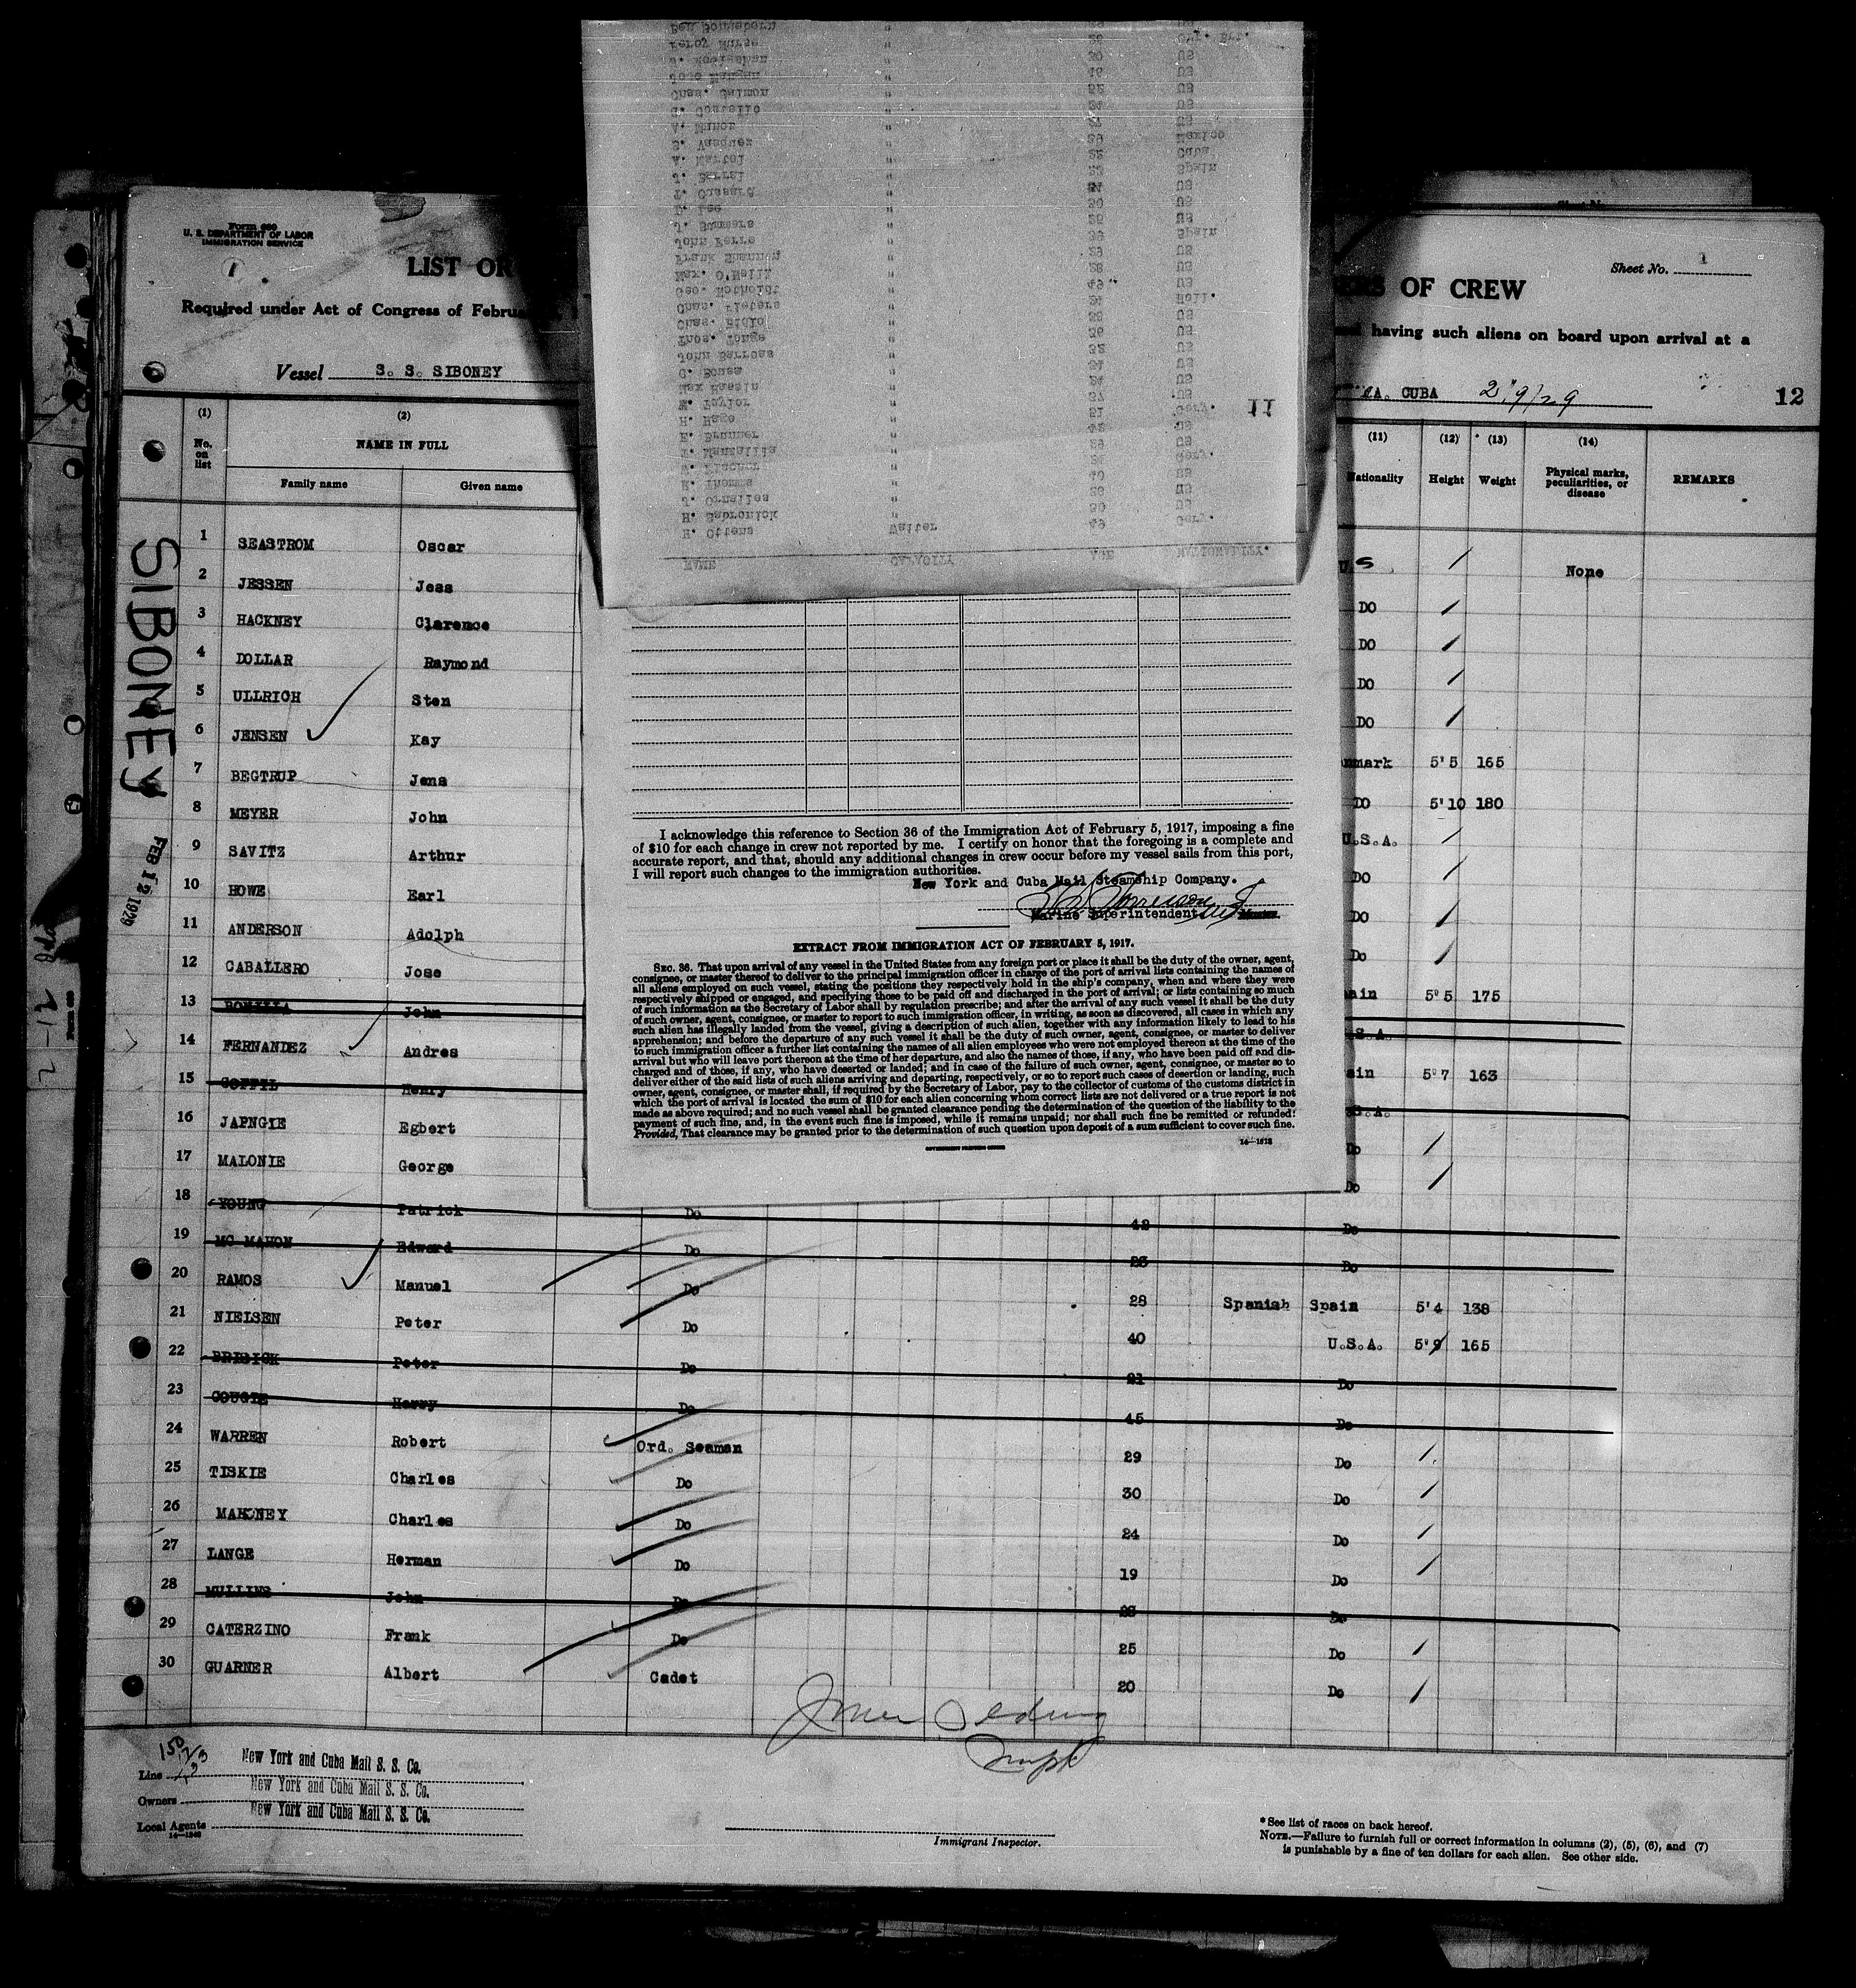 Form 680
U. S. DEPARTMENT OF LABOR
IMMIGRATION SERVICE
1
LIST OR
OF CREW
Sheet No. 1
Required under Act of Congress of Februa
having such aliens on board upon arrival at a
Vessel S. S. SIBONEY
A. CUBA 2/9/29
12
(1) (2) (11) (12) (13) (14)
No. on list
NAME IN FULL
Family name Given name
Nationality Height Weight Physical marks, peculiarities, or disease REMARKS
SIBONEY
FEB 12 1929
1 SEASTROM Oscar U.S None
2 JESSEN Jess DO
3 HACKNEY Clarence DO
4 DOLLAR Raymond DO
5 ULLRICH Sten DO
6 JENSEN Kay nmark 5'5 165
7 BEGTRUP Jens DO 5'10 180
8 MEYER John U.S.A.
9 SAVITZ Arthur DO
10 HOWE Earl DO
11 ANDERSON Adolph Do
12 CABALLERO Jose ain 5'5 175
13 John S.A.
14 FERNANDEZ Andres ain 5'7 163
15 Henry S.A.
16 JAPNGIE Egbert Do
17 MALONIE George Do
18 YOUNG Patrick Do 42 Do
19 MC MAHON Edward Do 23 Do
20 RAMOS Manuel Do 28 Spanish Spain 5'4 138
21 NIELSEN Peter Do 40 U.S.A. 5'9 165
22 Peter Do 21 Do
23 COUGIE Harry Do 45 Do
24 WARREN Robert Ord. Seaman 29 Do
25 TISKIE Charles Do 30 Do
26 MAHONEY Charles Do 24 Do
27 LANGE Herman Do 19 Do
28 MULLINS John Do Do
29 CATERZINO Frank Do 25 Do
30 GUARNER Albert Cadet 20 Do
Line New York and Cuba Mail S. S. Co.
Owners New York and Cuba Mail S. S. Co.
Local Agents New York and Cuba Mail S. S. Co.
14-1240
Immigrant Inspector.
* See list of races on back hereof.
NOTE.—Failure to furnish full or correct information in columns (2), (5), (6), and (7)
is punishable by a fine of ten dollars for each alien. See other side.
NAME CAPACITY AGE NATIONALITY.
H. Ottens Waiter 49 Gery.
H. Sabronick " 30 US
J. Ornalles " 28 US
R. Thomas " 40 US
W. Fischer " Gery.
F. Mantallia " 29 US
E. Brunner " 42 US
H. Hage " 31 Gery.
W. Taylor " 37 US
Max Hassin " 24 US
C. Sousa " 31 US
John Barross " 32 US
Thos. Tonge " 36 US
Chas. Biglo " US
Chas. Pieters " 24 Holl.
Geo. Notholdt " 49 US
Max. O'Neill " 28 US
Frank Shannon " 29 US
John Ferro " 39 Spain
J. Summers " 26 US
D. Lee " 30 US
T. Cussard " US
J. Borrel " 23 Spain
A. Martel " 22 Cuba
S. Vasquez " 39 Mexico
A. Munoz " US
G. Costello " 24 US
Chas. Salmon " 52 US
Jose Mangan " 46 US
" 30 US
Leroy Nurse " 26
11
I acknowledge this reference to Section 36 of the Immigration Act of February 5, 1917, imposing a fine
of $10 for each change in crew not reported by me. I certify on honor that the foregoing is a complete and
accurate report, and that, should any additional changes in crew occur before my vessel sails from this port,
I will report such changes to the immigration authorities.
New York and Cuba Mail Steamship Company.
Marine Superintendent Master.
EXTRACT FROM IMMIGRATION ACT OF FEBRUARY 5, 1917.
SEC. 36. That upon arrival of any vessel in the United States from any foreign port or place it shall be the duty of the owner, agent,
consignee, or master thereof to deliver to the principal immigration officer in charge of the port of arrival lists containing the names of
all aliens employed on such vessel, stating the positions they respectively hold in the ship's company, when and where they were
respectively shipped or engaged, and specifying those to be paid off and discharged in the port of arrival; or lists containing so much
of such information as the Secretary of Labor shall by regulation prescribe; and after the arrival of any such vessel it shall be the duty
of such owner, agent, consignee, or master to report to such immigration officer, in writing, as soon as discovered, all cases in which any
such alien has illegally landed from the vessel, giving a description of such alien, together with any information likely to lead to his
apprehension; and before the departure of any such vessel it shall be the duty of such owner, agent, consignee, or master to deliver
to such immigration officer a further list containing the names of all alien employees who were not employed thereon at the time of the
arrival but who will leave port thereon at the time of her departure, and also the names of those, if any, who have been paid off and dis-
charged and of those, if any, who have deserted or landed; and in case of the failure of such owner, agent, consignee, or master so to
deliver either of the said lists of such aliens arriving and departing, respectively, or so to report such cases of desertion or landing, such
owner, agent, consignee, or master shall, if required by the Secretary of Labor, pay to the collector of customs of the customs district in
which the port of arrival is located the sum of $10 for each alien concerning whom correct lists are not delivered or a true report is not
made as above required; and no such vessel shall be granted clearance pending the determination of the question of the liability to the
payment of such fine, and, in the event such fine is imposed, while it remains unpaid; nor shall such fine be remitted or refunded:
Provided, That clearance may be granted prior to the determination of such question upon deposit of a sum sufficient to cover such fine.
GOVERNMENT PRINTING OFFICE